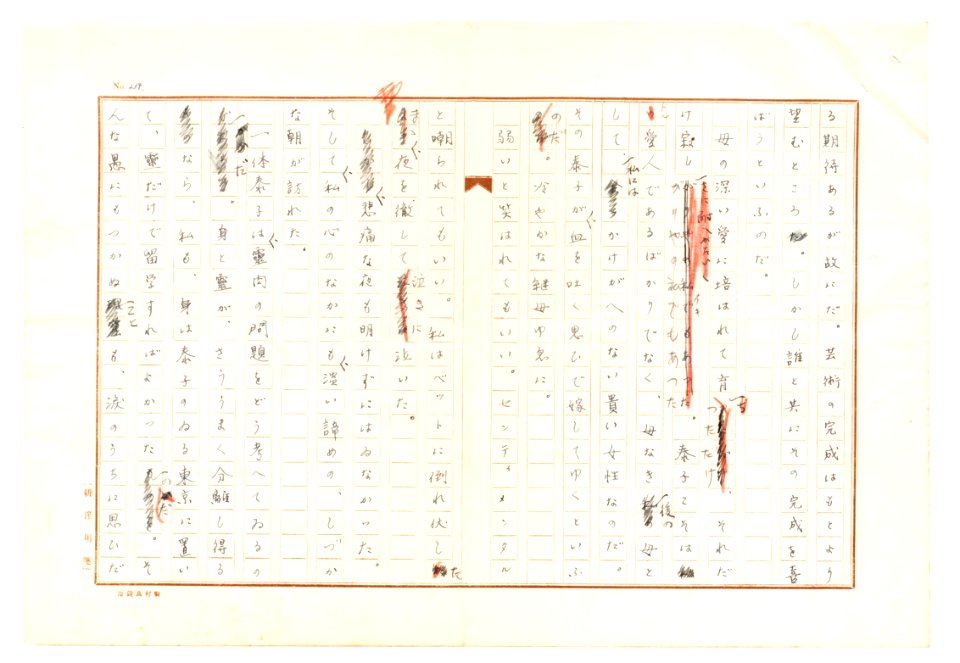 No. 217
る期待あるが故にだ。芸術の完成はもとより
望むところ。しかし誰と共にその完成を喜
ばうといふのだ。
母の深い愛に培はれて育つただけ、それだ
け寂しがりやの私でもあつた。泰子こそは
愛人であるばかりでなく、母なき後の母と
して、私にはかけがへのない貴い女性なのだ。
その泰子が血を吐く思ひで嫁してゆくといふ
のだ。冷やかな継母ゆゑに。
弱いと笑はれてもいい。センティメンタル
と嘲られてもいい。私はベットに倒れ伏した
まゝ、夜を徹して泣きに泣いた。
悲痛な夜も明けずにはゐなかつた。
そして、私の心のなかにも深い諦めの、しづか
な朝が訪れた。
一体泰子は霊肉の問題をどう考へてゐるの
だ。身と霊が、さううまく分離し得る
なら、私も、身は泰子のゐる東京に置い
て、霊だけで留学すればよかつたのだ。そ
んな愚にもつかぬことも、涙のうちに思ひだ